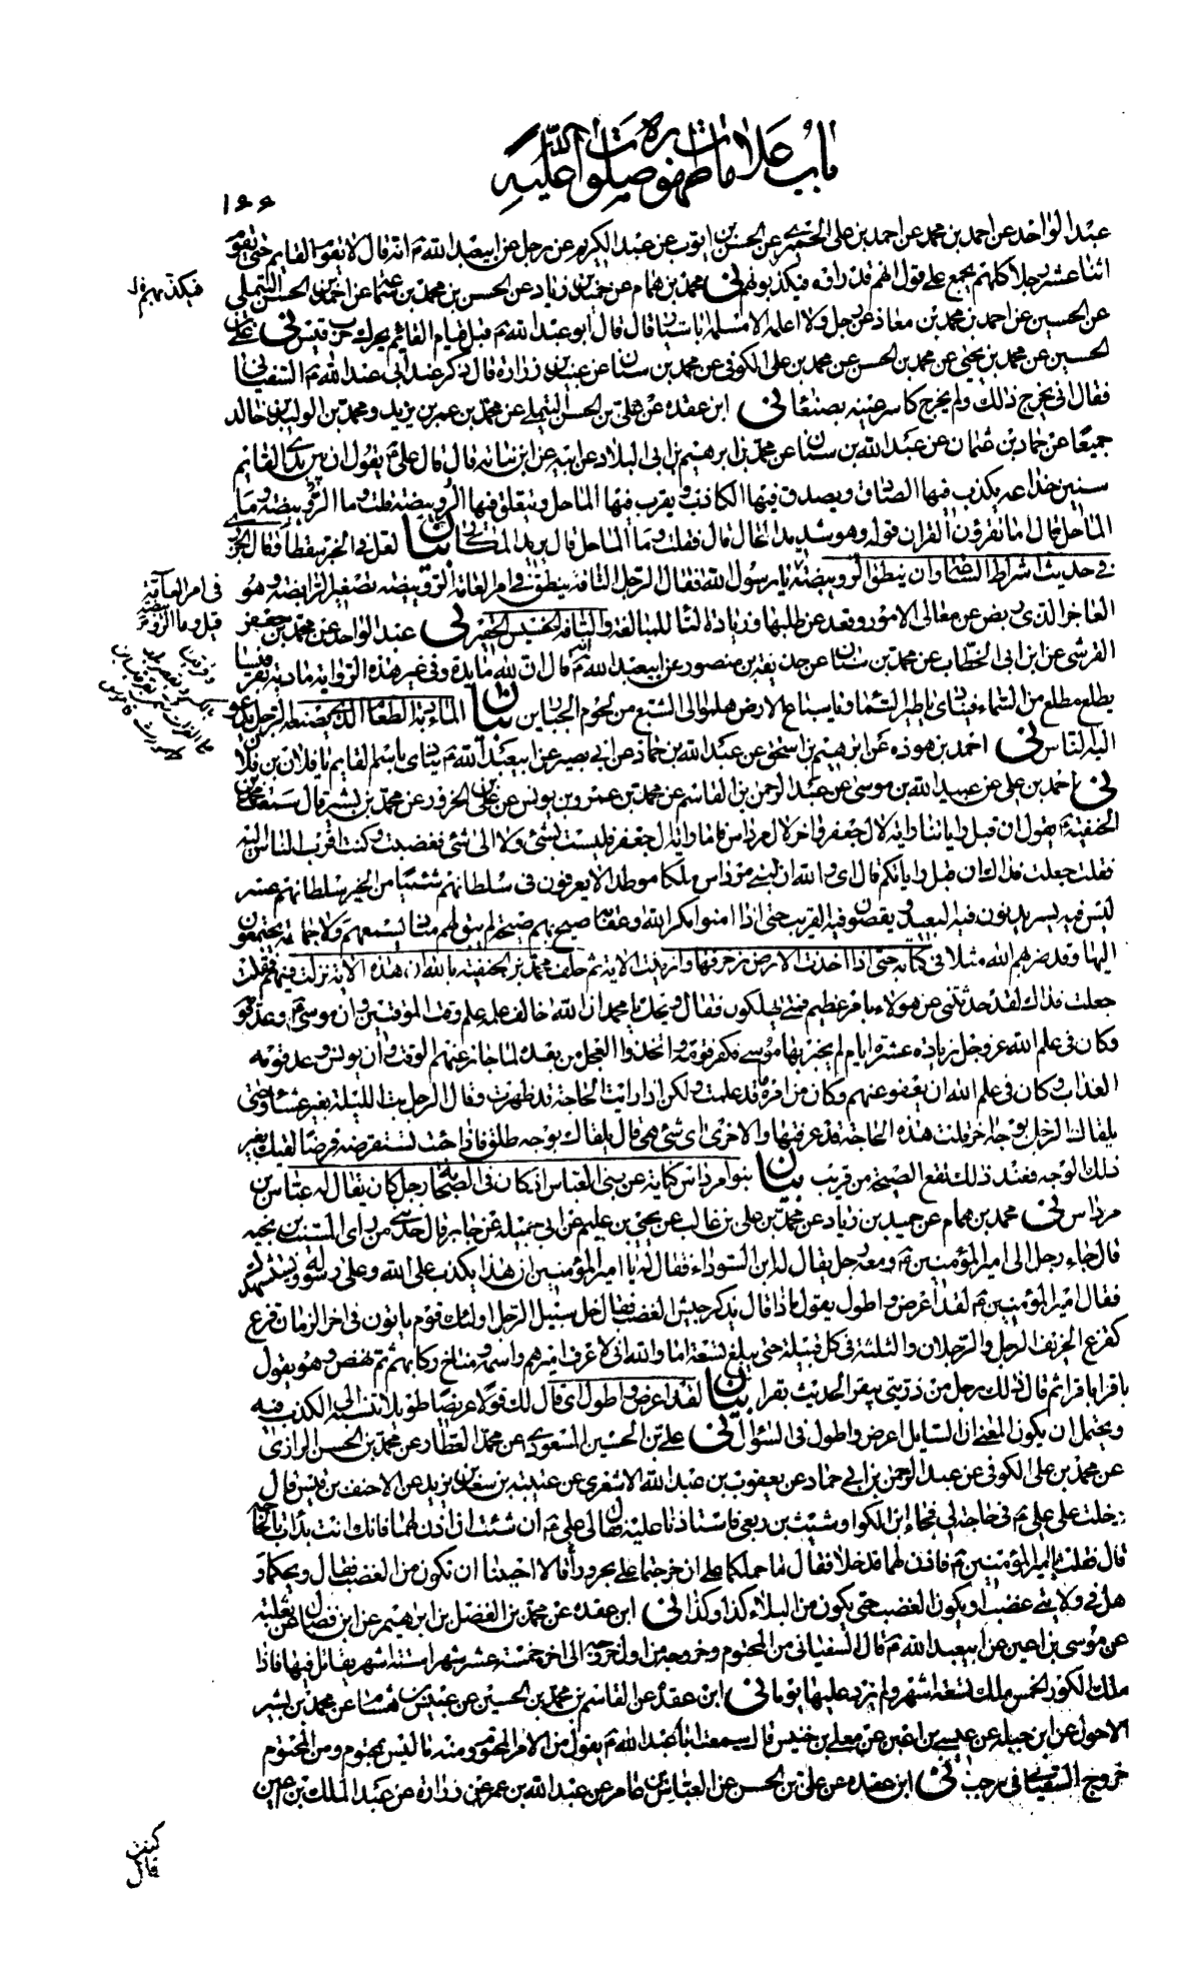 باب علامات ظهوره صلوات الله عليه
١٦٦
عبد الواحد عن احمد بن محمد عن احمد بن علي الحميري عن الحسن بن ايوب عن عبد الكريم عن رجل عن ابيعبد الله ع انه قال لا يقوم القايم حتى يقوم
اثنا عشر رجلا كلهم يجمع على قول انهم قد راوه فيكذبونهم نى محمد بن همام عن حميد بن زياد عن الحسن بن محمد بن عن احمد بن الحسن الميثمي
فيكذبهم
عن الحسين عن احمد بن محمد بن معاذ عن رجل ولا اعلمه الا مسلمة قال قال ابو عبد الله ع قبل قيام القائم يحرك حرب قيس نى علي بن
الحسين عن محمد بن يحيى عن محمد بن الحسن عن محمد بن علي الكوفي عن محمد بن سنان عن عبيد بن زرارة قال ذكر عند ابي عبد الله ع السفياني
فقال انى يخرج ذلك ولم يخرج كاسر عينيه بصنعا نى ابن عقده عن علي بن الحسن التيملي عن محمد بن عمر بن يزيد ومحمد بن الوليد بن خالد
جميعا عن حماد بن عثمان عن عبد الله بن سنان عن محمد بن ابرهيم بن ابي البلاد عن ابيه عن ابن نباته قال قال علي ع يقول ان بين يدي القايم
سنين خداعه يكذب فيها الصادق ويصدق فيها الكاذب ويقرب فيها الماحل ويتعلق فيها الرويبضه قلت وما الرويبضه وما
الماحل قال اما تقرؤن القران قوله وهو شديد المحال قال فقلت وما الماحل قال يريد المكار بيان لعل في الخبر سقطا فقال الجزري
في حديث اشراط الساعة وان ينطق الرويبضة يا رسول الله فقال الرجل التافه ينطق في امر العامة الرويبضه تصغير الرابضة وهو
في امر العامة
قيل وما الرويبضة
العاجز الذي ربض عن معالي الامور وقعد عن طلبها وزيادة التا للمبالغة والتافه الخسيس الحقير نى عبد الواحد عن محمد بن جعفر
القرشي عن ابن ابي الخطاب عن محمد بن سنان عن حذيفة بن منصور عن ابيعبد الله ع قال ان لله مايدة وفي غير هذه الرواية مادبة بقرقيسا
يطلع مطلع من السماء فينادي يا طير السماء ويا سباع الارض هلموا الى الشبع من لحوم الجبارين بيان المادبة الطعام الذي يصنعه الرجل يدعو
اليه الناس نى احمد بن هوذه عن ابرهيم بن اسحق عن عبد الله بن حماد عن ابي بصير عن ابيعبد الله ع ينادى باسم القايم يا فلان بن فلان
نى احمد بن علي عن عبيد الله بن موسى عن عبد الرحمن بن القاسم عن محمد بن عمرو بن يونس عن عن محمد بن بشر قال سمعت محمد بن
الحنفية يقول ان قبل راياتنا راية لال جعفر واخرى لال مرداس فاما راية ال جعفر فليست بشئ ولا الى شئ فغضبت وكنت اقرب الناس اليه
فقلت جعلت فداك ان قبل راياتكم قال اي والله ان لبني مرداس ملكا موطدا لا يعرفون في سلطانهم شيئا من الخير سلطانهم عسر
ليس فيه يسر يدنون فيه البعيد ويقصون فيه القريب حتى اذا امنوا مكر الله وعقابه صيح بهم صيحة لم يبق لهم مناد يسمعهم ولا جماعة يجتمعون
اليها وقد ضربهم الله مثلا في كتابه حتى اذا اخذت الارض زخرفها وازينت الاية ثم حلف محمد بن الحنفية بالله ان هذه الاية نزلت فيهم فقلت
جعلت فداك لقد حدثتني عن هولاء بامر عظيم فمتى يهلكون فقال ويحك يا محمد ان الله خالف علمه علم وقت الموقتين وان موسى ع وعد قومه
وكان في علم الله عز وجل زيادة عشرة ايام لم يخبر بها موسى فكفر قومه واتخذوا العجل من بعده لما جاز عنهم الوقت وان يونس وعد قومه
العذاب وكان في علم الله ان يعفو عنهم وكان من امره ما قد علمت ولكن اذا رايت الحاجة قد ظهرت وقال الرجل بت الليلة بغير عشاء وحتى
يلقاك الرجل بوجه ثم اخر قلت هذه الحاجة قد عرفتها والاخرى اى شئ هي قال يلقاك بوجه طلق فاذا جئت تستقرضه قرضا لقيك بغير
ذلك الوجه فعند ذلك تقع الصيحة من قريب بيان بنو مرداس كناية عن بني العباس اذ كان في الصحابة رجل كان يقال له عباس بن
مرداس نى محمد بن همام عن حميد بن زياد عن محمد بن علي بن غالب عن يحيى بن عليم عن ابي جميلة عن جابر قال حدثني من راى المسيب بن نجبه
قال جاء رجل الى امير المؤمنين ع ومعه رجل يقال له ابن السوداء فقال له يا امير المؤمنين ان هذا يكذب على الله وعلى رسوله ويستشهدك
فقال امير المؤمنين ع لقد اعرض واطول يقول ماذا قال يذكر جيش الغضب فقال خل سبيل الرجل اولئك قوم ياتون في اخر الزمان قزع
كقزع الخريف الرجل والرجلان والثلثة في كل قبيلة حتى يبلغ تسعة اما والله اني لاعرف اميرهم واسمه ومناخ ركابهم ثم نهض وهو يقول
باقرا باقرا ثم قال ذلك رجل من ذريتي يبقر الحديث بقرا بيان لقد اعرض واطول اى قال لك قولا عريضا طويلا تنسبه الى الكذب فيه
ويحتمل ان يكون المعنى ان السايل اعرض واطول في السؤال نى علي بن الحسين المسعودي عن محمد العطار عن محمد بن الحسن الرازي
عن محمد بن علي الكوفي عن عبد الرحمن بن ابي حماد عن يعقوب بن عبد الله الاشعري عن عتيبة بن سعدان بن يزيد عن الاحنف بن قيس قال
دخلت على علي ع في حاجة لي فجاء ابن الكوا وشبث بن ربعي فاستاذنا عليه فقال لي علي ع ان شئت ان اذن لهما فانك انت بدات بالحاجة
قال قلت يا امير المؤمنين ع فاذن لهما فدخلا فقال ما حملكما على ان خرجتما علي بحروراء قالا احببنا ان نكون من الغضب فقال ويحكما و
هل في ولايتي غضب او يكون الغضب حتى يكون من البلاء كذا وكذا نى ابن عقده عن محمد بن الفضل بن ابرهيم عن ابن فضال عن ثعلبة
عن موسى بن اعين عن ابيعبد الله ع قال السفياني من المحتوم وخروجه من اول خروجه الى اخره خمسة عشر شهرا ستة اشهر يقاتل فيها فاذا
ملك الكور الخمس ملك تسعة اشهر ولم يزد عليها يوما نى ابن عقدة عن القاسم بن محمد بن الحسين عن عبيس بن هشام عن محمد بن بشر
الاحول عن ابن جبلة عن عيسى بن اعين عن معلى بن خنيس قال سمعت ابا عبد الله ع يقول من الامر المحتوم ومنه ما ليس بمحتوم ومن المحتوم
خروج السفياني في رجب نى ابن عقده عن علي بن الحسن عن العباس بن عامر عن عبد الله بن عن زرارة عن عبد الملك بن اعين
كنت
قال